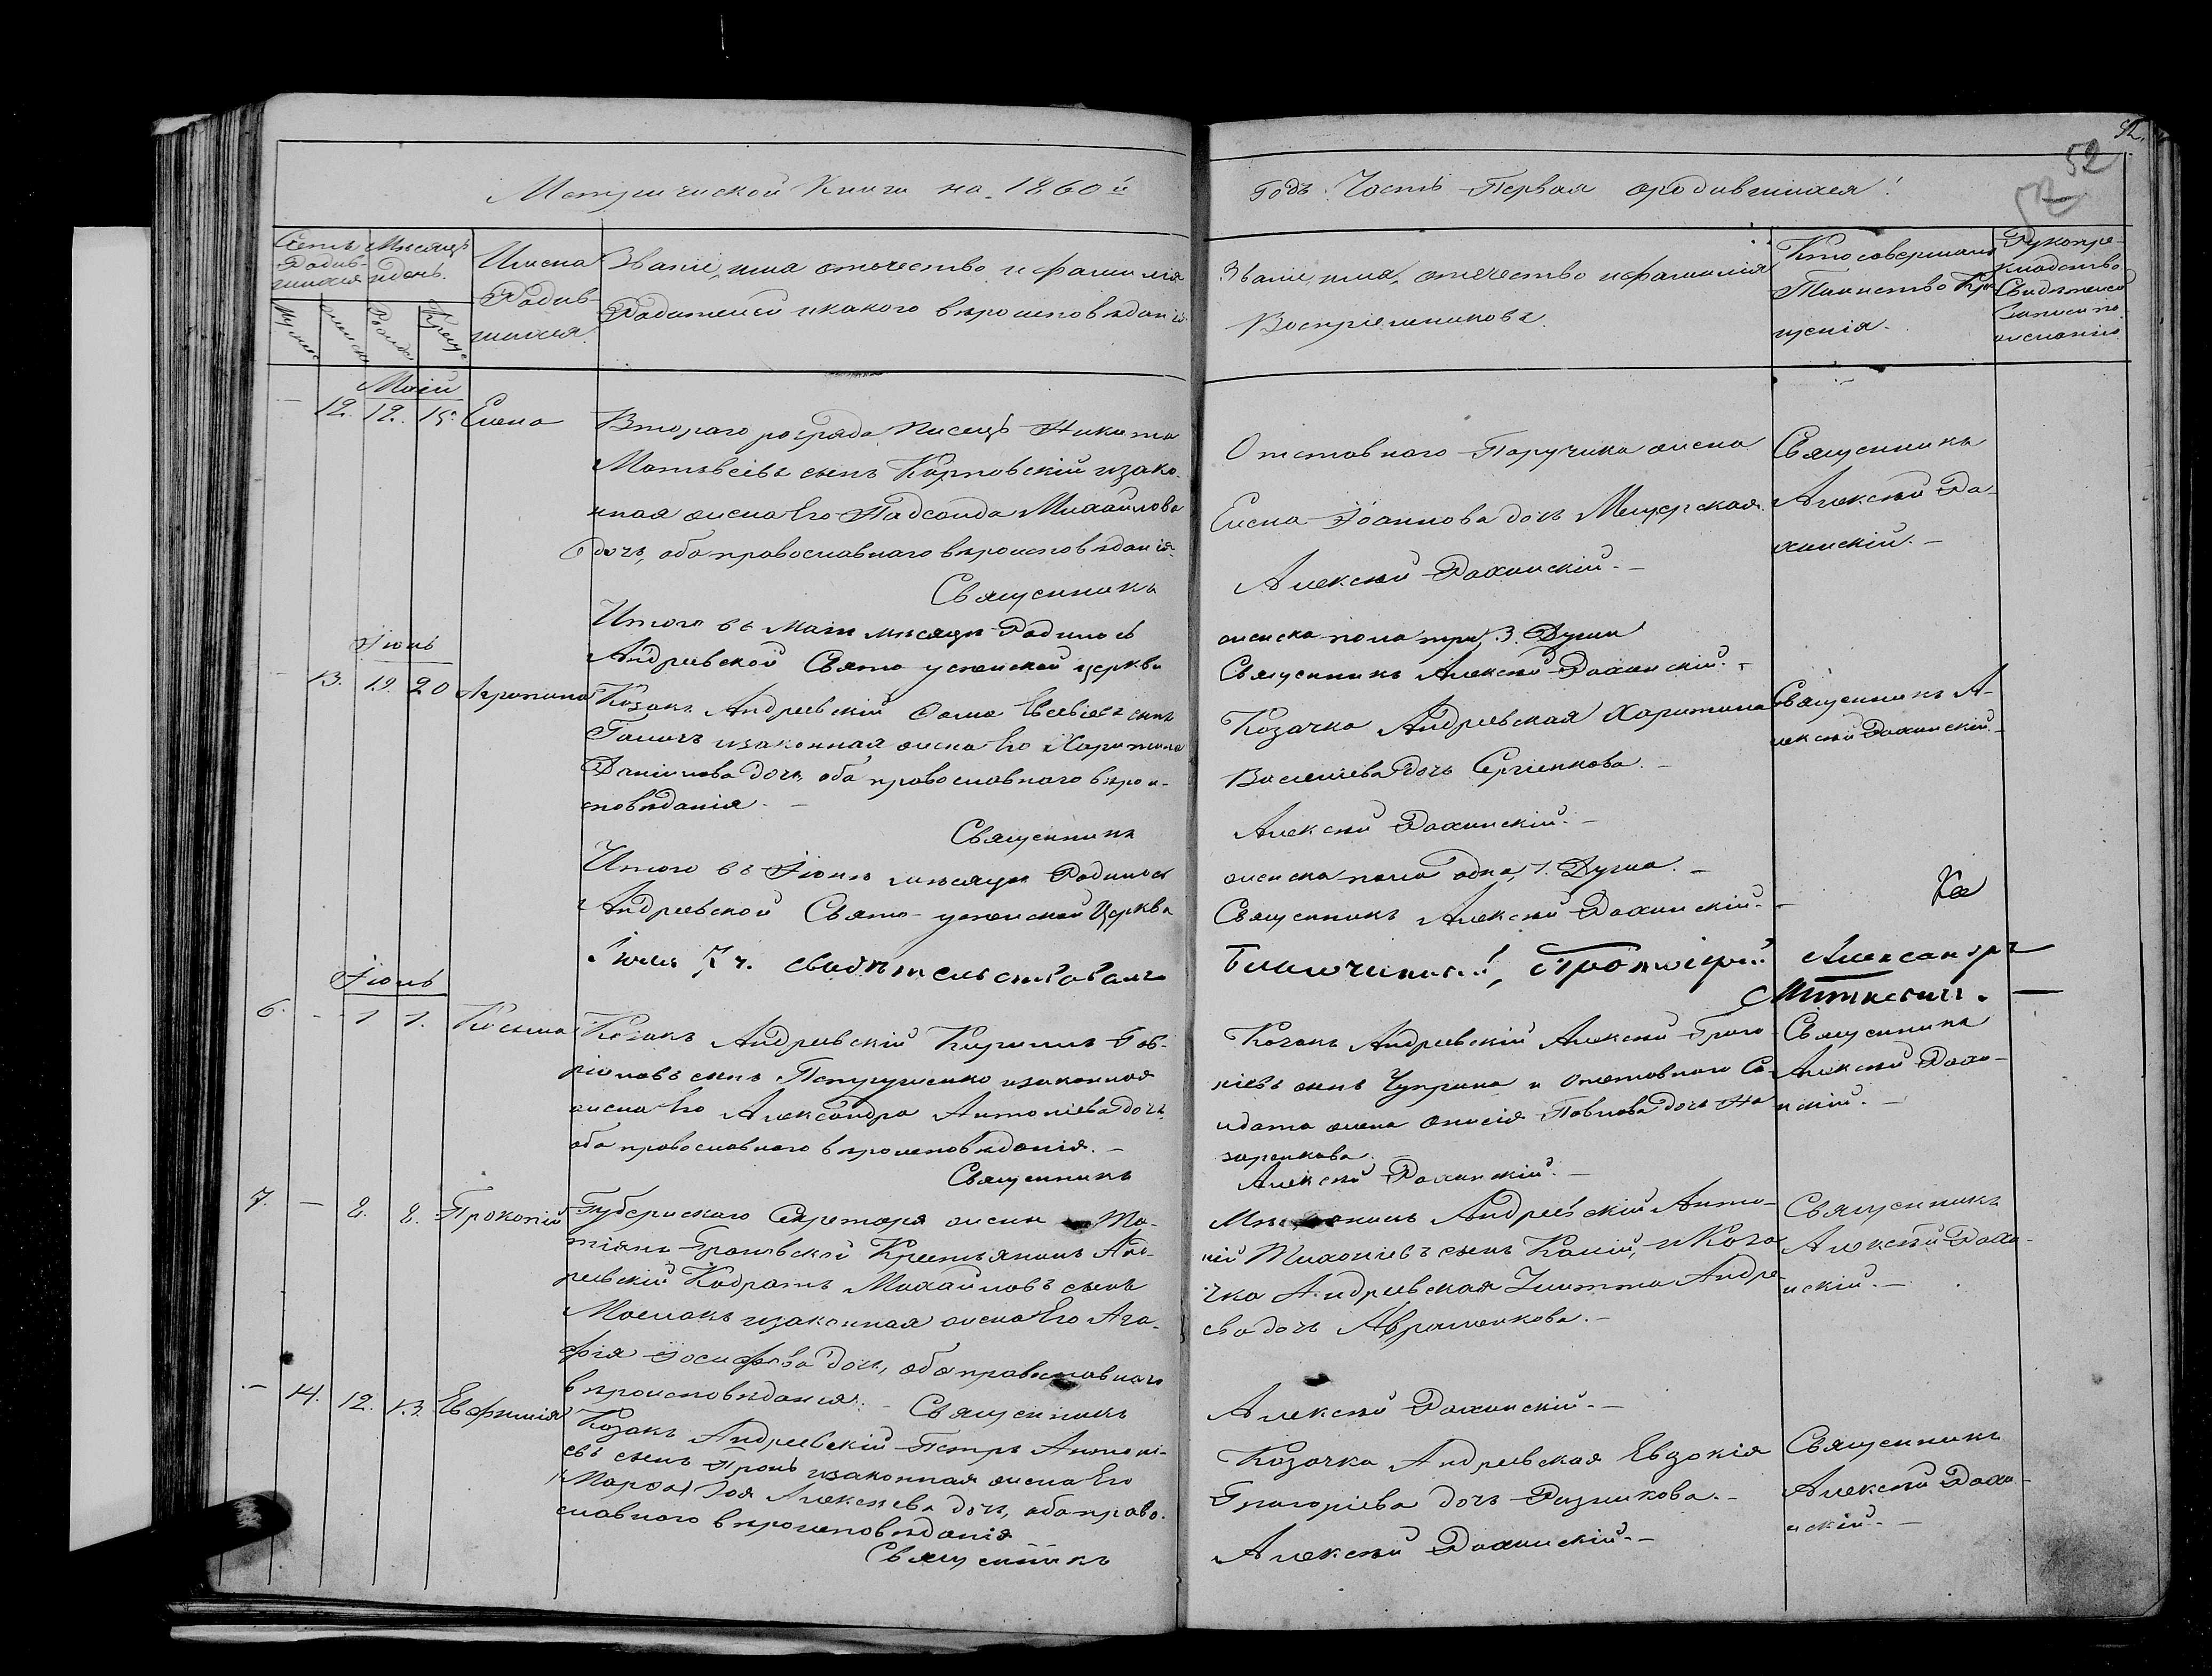 52
52
Метрической Книги на 1860й
Годъ. Часть Первая о родившихся.
Счетъ Родившихся
Мѣсяцъ и день.
Имена Родившихся
Званіе, имя отечество и фамилія
Родителей и какого вѣроисповѣданія
Званіе, имя, отечество и фамилія
Воспріемниковъ.
Кто совершалъ
Таинство Кре-
щенія.
Рукопри-
кладство
Свидѣтелей
записи по
желанію
Май
12. 12. 15. Елена
Втораго розряда Писецъ Никита
Матвѣевъ сынъ Карповскій и зако-
нная жена его Михайлова
дочь, оба православнаго вѣроисповѣданія.
Священникъ
Отставного Поручика жена
Елена Іоаннова дочь Мещерская
Алексѣй
Священникъ
Алексѣй
Итого въ Маѣ мѣсяцѣ Родилось
Андреевской Свято-успенской церкви
женска пола три, 3. Души
Священникъ Алексѣй
Іюнь
13. 19. 20 Агрипина
Козакъ Андреевскій Фома Евсевіевъ сынъ
и законная жена его Харитина
Даніилова дочь, оба православнаго вѣрои-
сповѣданія. –
Священникъ
Козачка Андреевская Харитина
Василіева дочь Сергіенкова. –
Алексѣй
Священникъ А-
лексѣй
Итого въ Іюнѣ мѣсяцѣ Родилось
Андреевской Свято-успенской Церкви
женска пола одна, 1. Душа. –
Священникъ Алексѣй
Іюля 7 ч. свидѣтельствовалъ
Благочинный, Протоіерей Александръ
Іюль
6. - 1 1. Косьма
Козакъ Андреевскій Кириллъ Гав-
ріиловъ сынъ Петрушенко и законная
жена его Александра Антоніева дочь,
оба православнаго вѣроисповѣданія. –
Священникъ
Козакъ Андреевскій Алексѣй Григо-
ріевъ сынъ Чуприна и отставного Со-
лдата жена Анисія Павлова дочь На
заренкова.
Алексѣй
Священникъ
Алексѣй
7. — 8. 8. Прокопій
Губернскаго Секретаря жены Та-
тіяны Крестьянинъ Анд-
реевскій Кодратъ Михайловъ сынъ
и законная жена его Ага-
фія Іосифова дочь, оба православнаго
вѣроисповѣданія. – Священникъ
Андреевскій Анто-
ній Тихоніевъ сынъ и Коза
чка Андреевская Улитта Андре-
ева дочь Авраменкова. –
Алексѣй
Священникъ
Алексѣй
– 14. 12. 13. Евфимія
Козакъ Андреевскій Петръ Антоні-
евъ сынъ и законная жена его
Марфа Алексѣева дочь, оба право-
славнаго вѣроисповѣданія
Священникъ
Козачка Андреевская Евдокія
Григоріева дочь Рѣзникова. –
Алексѣй
Священникъ
Алексѣй